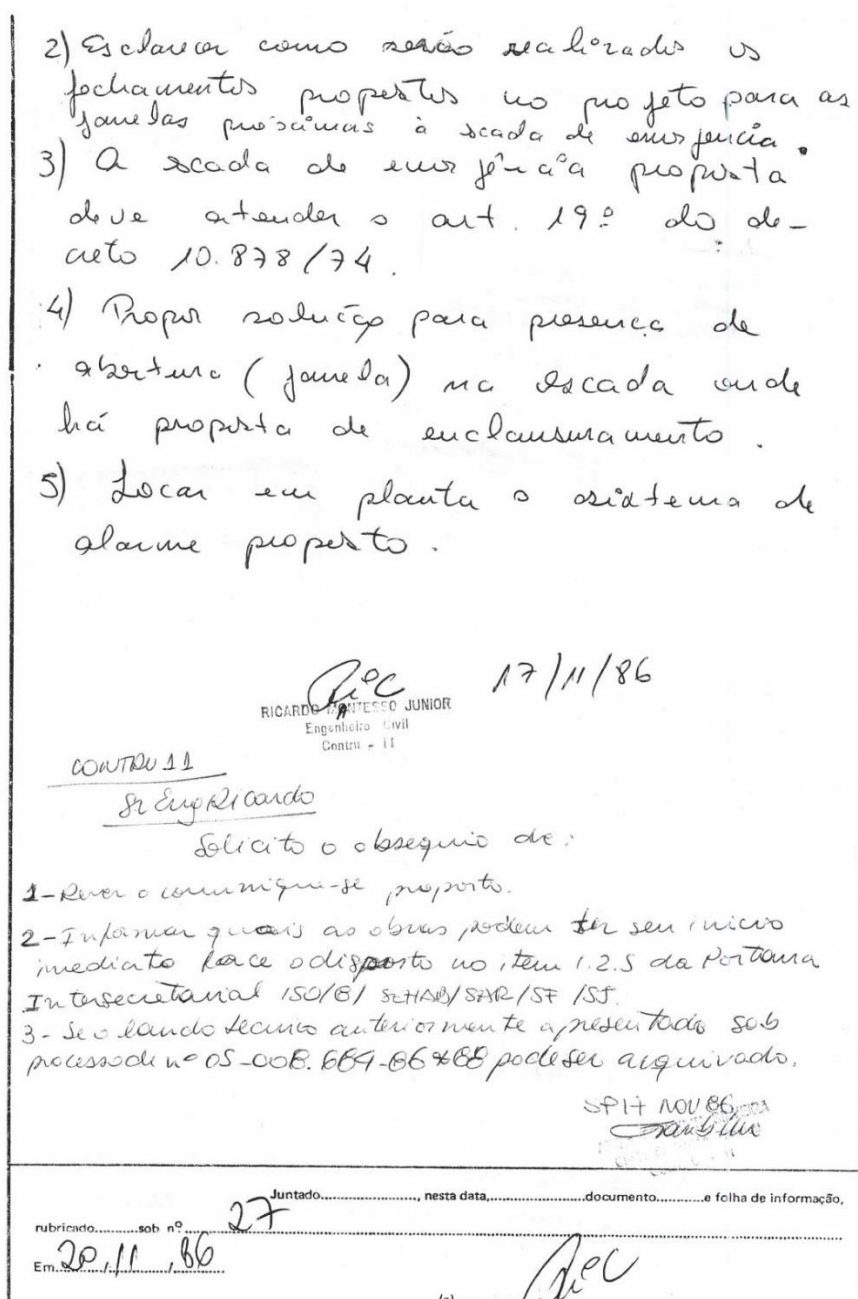 2) Esclarecer como serão realizados os
fechamentos propostos no projeto para as
janelas próximas à scada de emergência.
3) A scada de emergência proposta
deve atender o art. 19º do de-
creto 10.878/74.
4) Propor solução para presença de
abertura (janela) na escada onde
há proposta de enclausuramento.
5) Locar em planta o sistema de
alarme proposto.
Ric 17/11/86
RICARDO MONTESSO JUNIOR
Engenheiro Civil
Contru - 11
CONTRU 11
Sr Eng Ricardo
Solicito o obsequio de:
1-Rever o comunique-se proposto.
2-Informar quais as obras podem ter seu inicio
imediato face o disposto no item 1.2.5 da Portaria
Intersecretarial 150/81 SEHAB/SAR/SF/SJ.
3-Se o laudo tecnico anteriormente apresentado sob
processo de nº 05-008.664-86*88 pode ser arquivado.
SP 17 NOV 86
Juntado..................., nesta data,...................documento............e folha de informação,
rubricado...........sob nº 27
Em 20/11/86
Ric
(a)